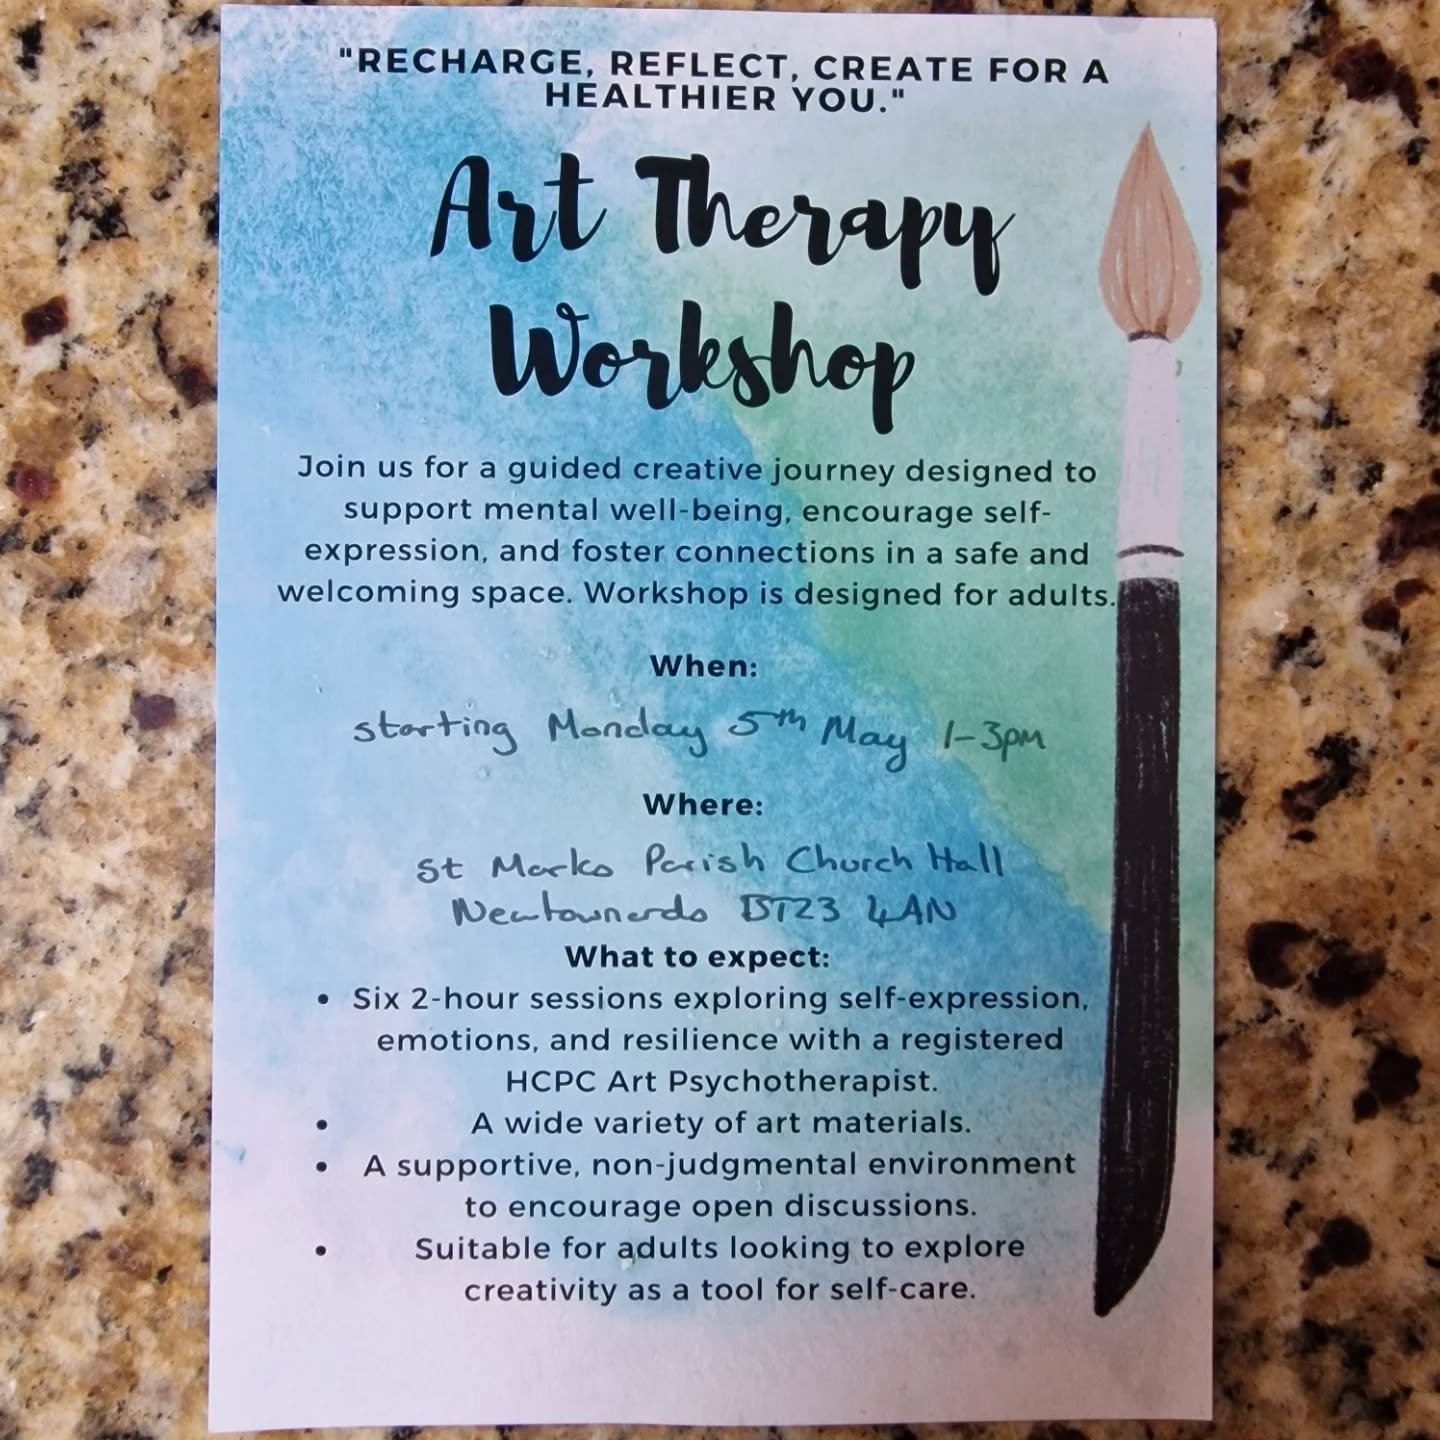 "RECHARGE, REFLECT, CREATE FOR A
HEALTHIER YOU."
Art Therapy
Workshop
Join us for a guided creative journey designed to
support mental well-being, encourage self-
expression, and foster connections in a safe and
welcoming space. Workshop is designed for adults.
When:
starting Monday 5th May 1-3pm
Where:
St Marks Parish Church Hall
Newtownards BT23 4AN
What to expect:
• Six 2-hour sessions exploring self-expression,
emotions, and resilience with a registered
HCPC Art Psychotherapist.
• A wide variety of art materials.
• A supportive, non-judgmental environment
to encourage open discussions.
• Suitable for adults looking to explore
creativity as a tool for self-care.